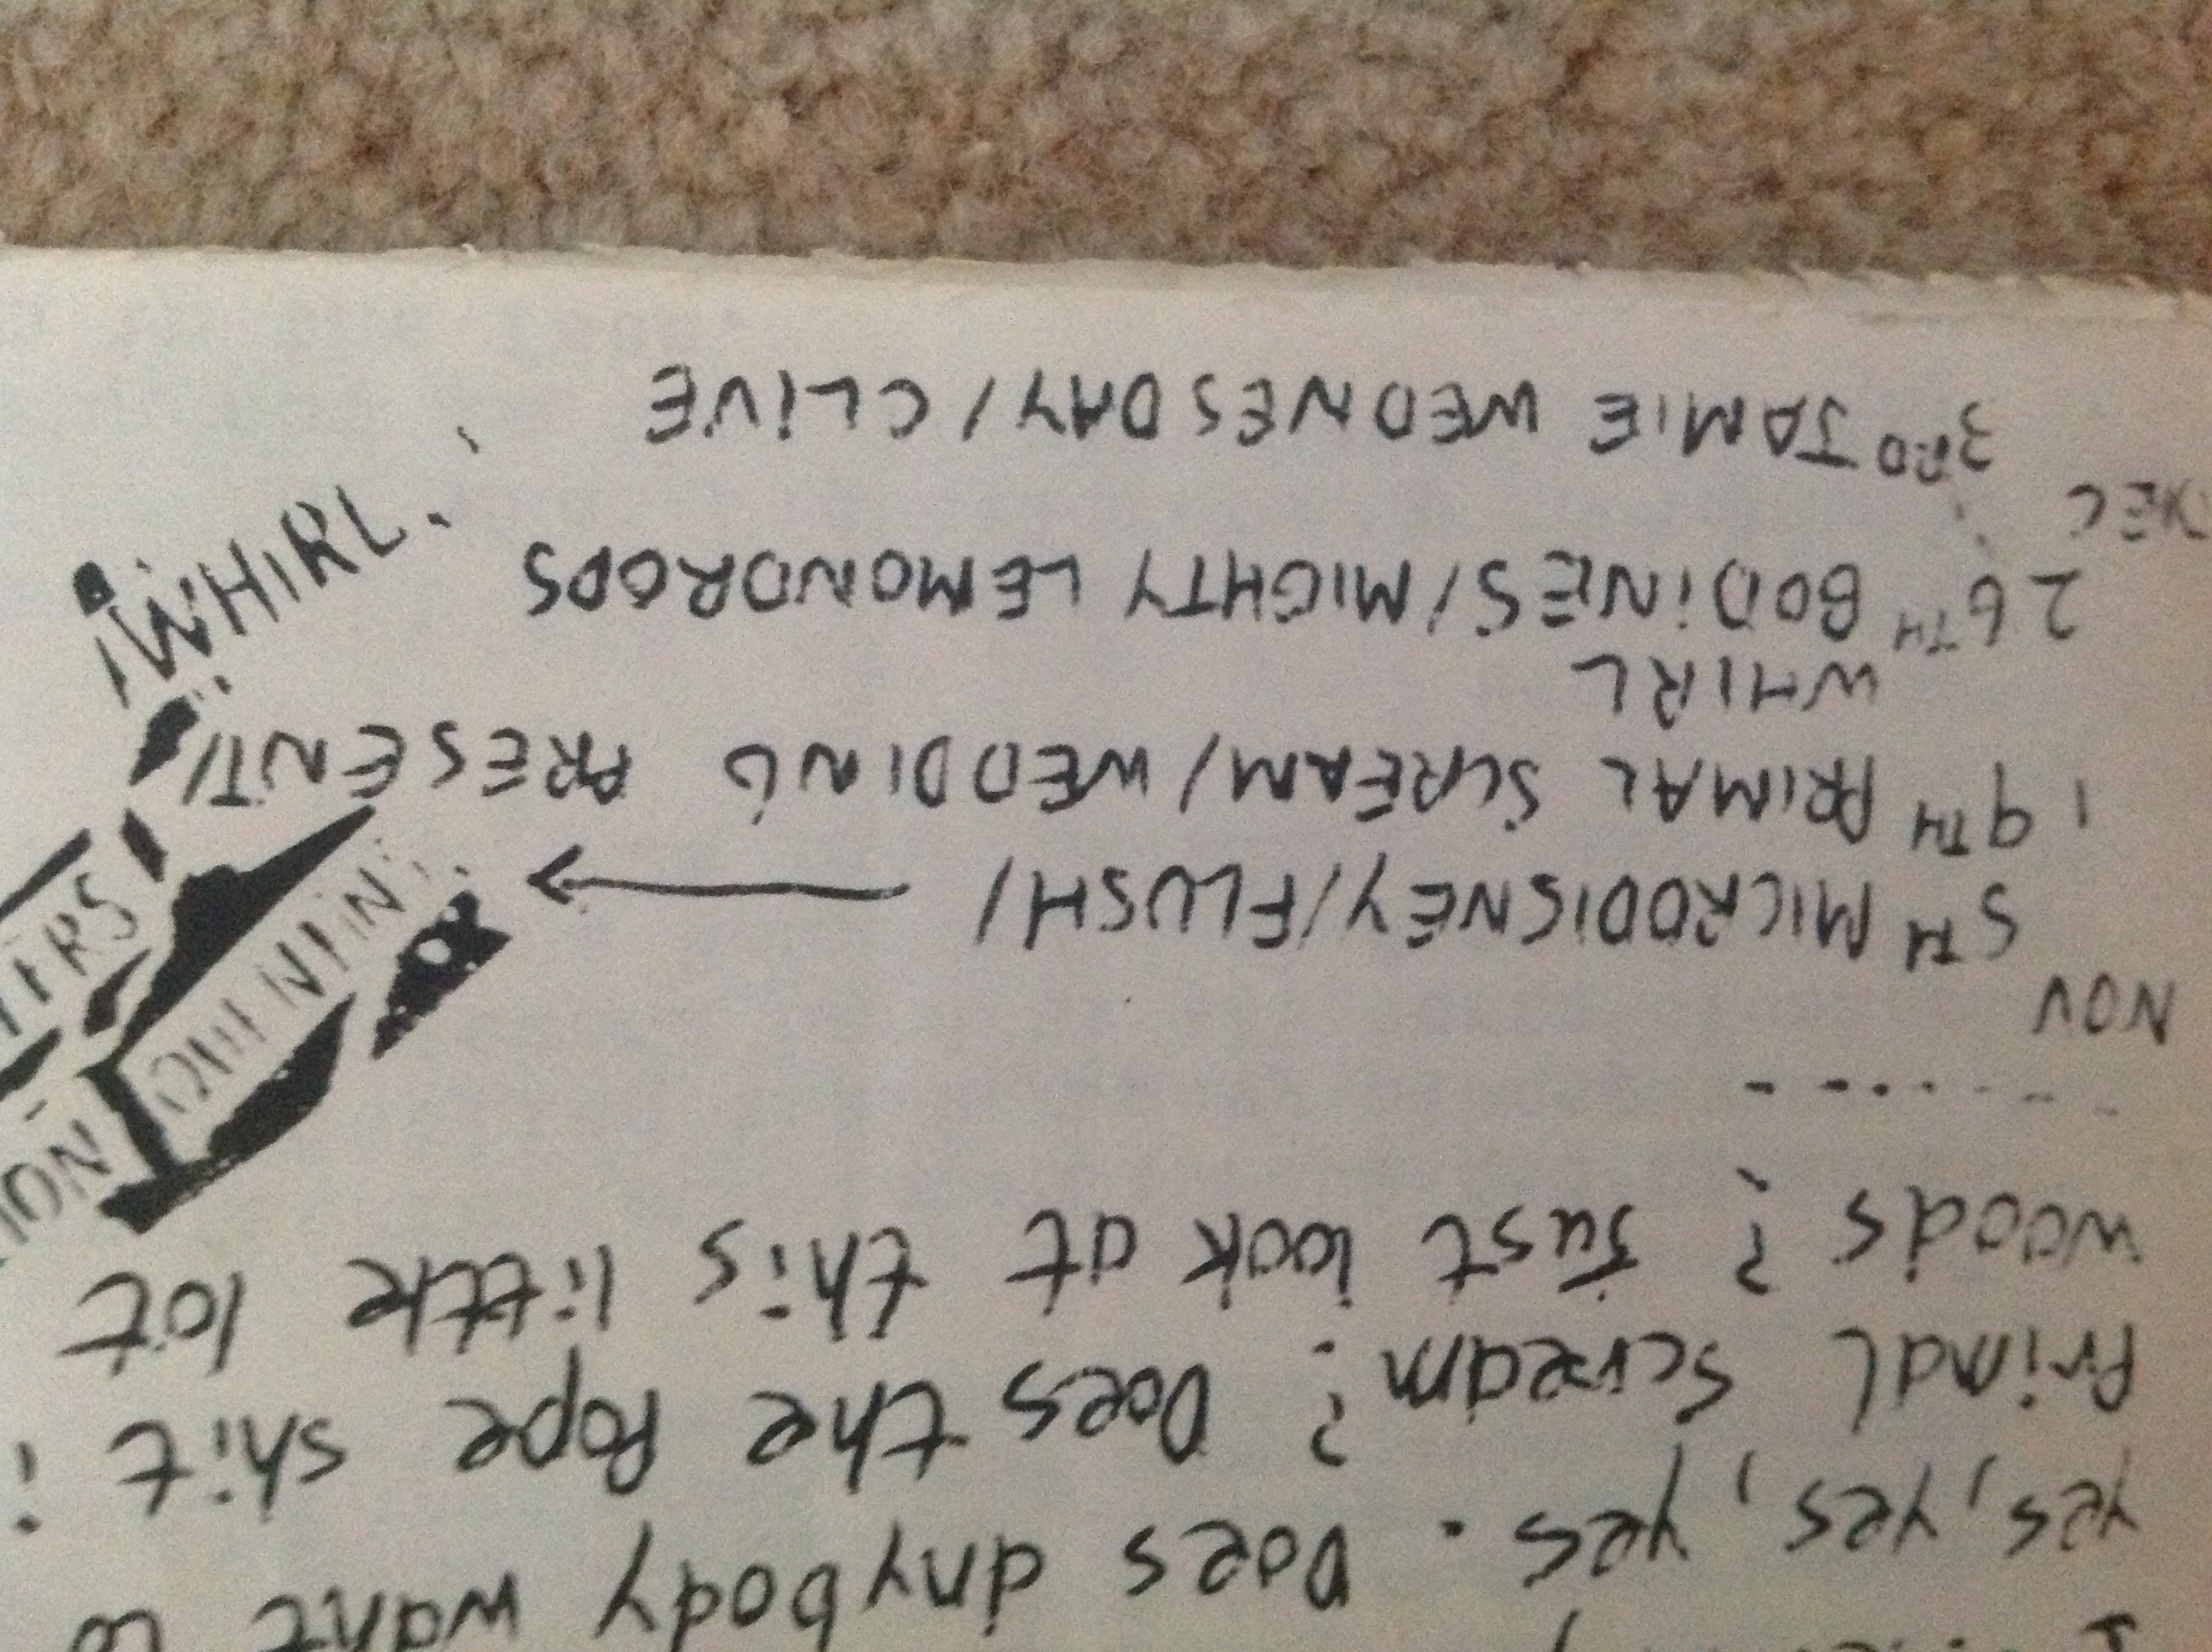 yes, yes, yes. Does anybody want
Primal Scream? Does the Pope shit i
woods? Just look at this little lot
NOV
5TH MICRODISNEY/FLUSH/
19TH PRIMAL SCREAM/WEDDING PRESENT/
WHIRL
26TH BODINES/MIGHTY LEMONDROPS
DEC
3RD JAMIE WEDNESDAY/CLIVE
WHIRL.